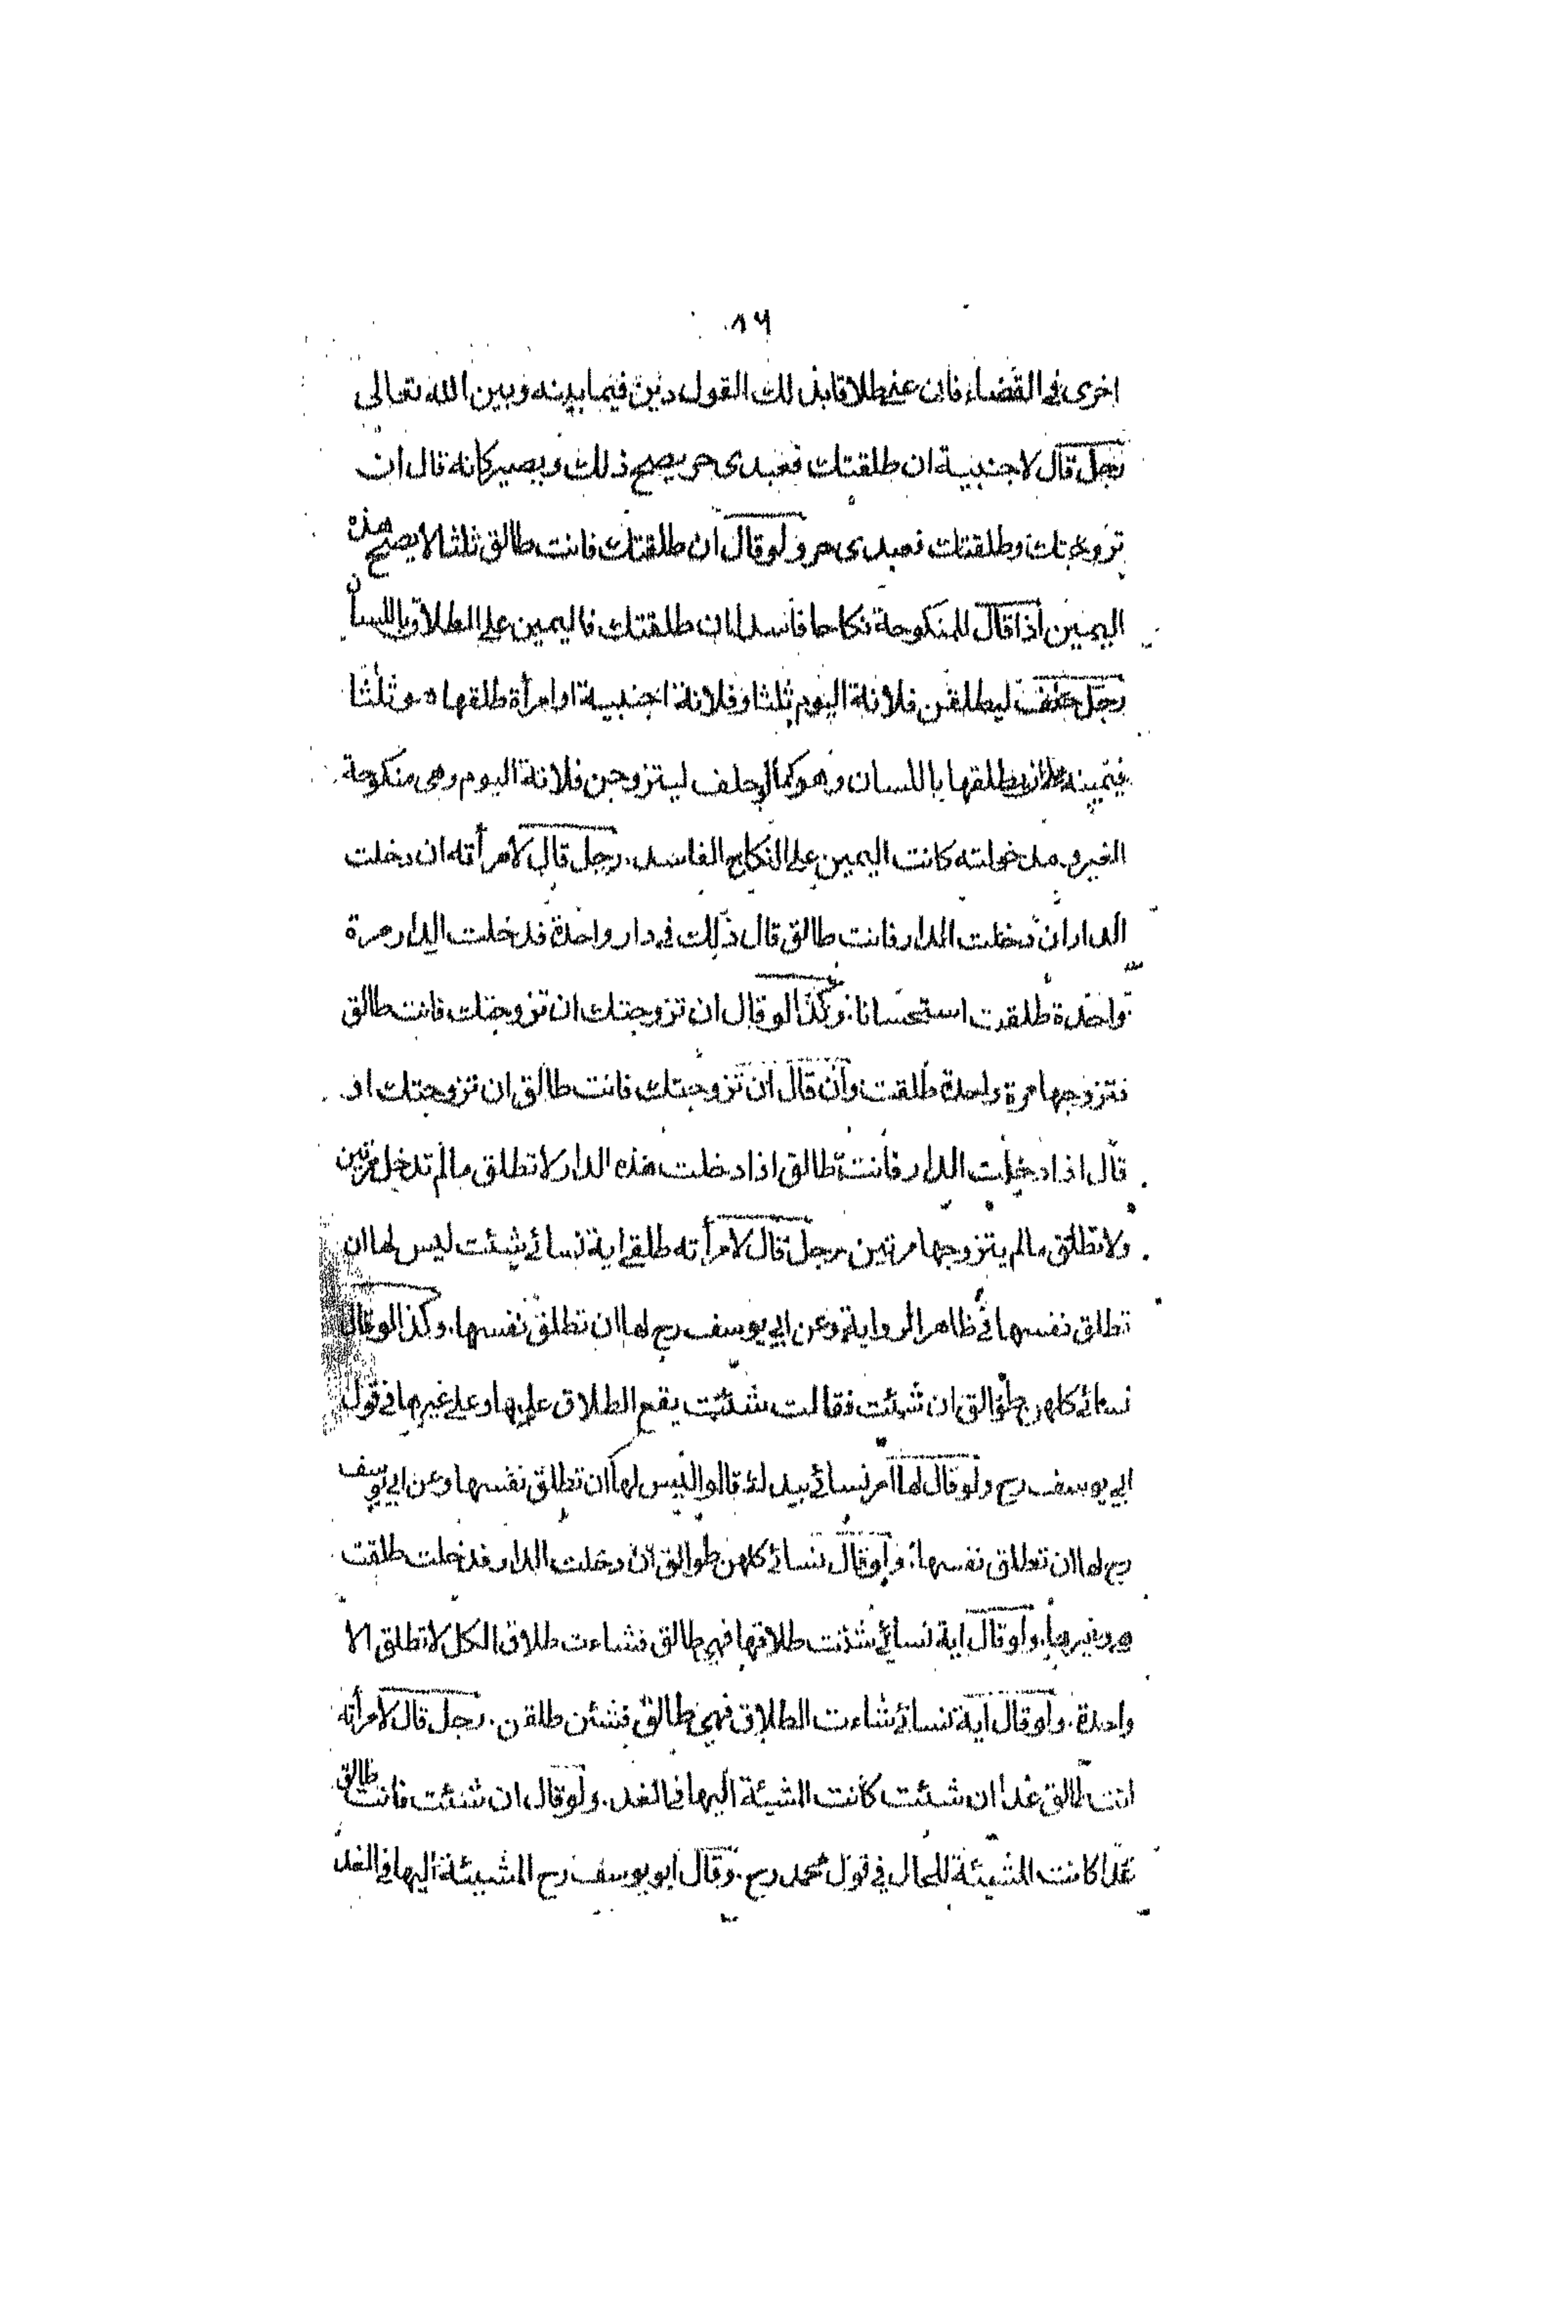 ٨٦
اخرى فى القضاء فان عنى طلاقا بذلك القول دين فيما بينه وبين الله تعالى
رجل قال لاجنبية ان طلقتك فعبدى حر يصح ذلك ويصير كانه قال ان
تزوجتك وطلقتك فعبدى حر ولو قال ان طلقتك فانت طالق ثلثا لا يصح هذه
اليمين اذا قال للمنكوحة نكاحا فاسدا ان طلقتك فاليمين على الطلاق باللسان
رجل حلف ليطلقن فلانة اليوم ثلثا وفلانة اجنبية او امرأة طلقها هو ثلثا
فيمينه على ان يطلقها باللسان وهو كما لو حلف ليتزوجن فلانة اليوم وهى منكوحة
الغير ومدخولته كانت اليمين على النكاح الفاسد. رجل قال لامرأته ان دخلت
الدار ان دخلت الدار فانت طالق قال ذلك فى دار واحدة فدخلت الدار مرة
واحدة طلقت استحسانا. وكذا لو قال ان تزوجتك ان تزوجتك فانت طالق
فتزوجها مرة واحدة طلقت وان قال ان تزوجتك فانت طالق ان تزوجتك او
قال اذا دخلت الدار فانت طالق اذا دخلت هذه الدار لا تطلق ما لم تدخل مرتين
ولا تطلق ما لم يتزوجها مرتين رجل قال لامرأته طلقى اية نسائى شئت ليس لها ان
تطلق نفسها فى ظاهر الرواية وعن ابى يوسف رح لها ان تطلق نفسها. وكذا لو قال
نسائى كلهن طوالق ان شئت فقالت شئت يقع الطلاق عليها وعلى غيرها فى قول
ابى يوسف رح ولو قال لها امر نسائى بيدك قالوا ليس لها ان تطلق نفسها وعن ابى يوسف
رح لها ان تطلق نفسها. ولو قال نسائى كلهن طوالق ان دخلت الدار فدخلت طلقت
هى وغيرها. ولو قال اية نسائى شئت طلاقها فهى طالق فشاءت طلاق الكل لا تطلق الا
واحدة. ولو قال اية نسائى شاءت الطلاق فهى طالق فشئن طلقن. رجل قال لامرأته
انت طالق غدا ان شئت كانت المشيئة اليها فى الغد. ولو قال ان شئت فانت طالق
غدا كانت المشيئة للحال فى قول محمد رح. وقال ابو يوسف رح المشيئة اليها فى الغد